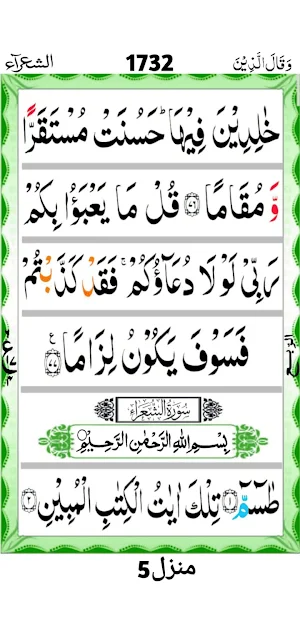 الشعراء 1732 وَقَالَ الَّذِيۡنَ
خٰلِدِيۡنَ فِيۡهَا ؕ حَسُنَتۡ مُسۡتَقَرًّا
وَّ مُقَامًا ﴿۷۶﴾ قُلۡ مَا يَعۡبَؤُا بِكُمۡ
رَبِّىۡ لَوۡ لَا دُعَآؤُكُمۡ ۚ فَقَدۡ كَذَّبۡتُمۡ
فَسَوۡفَ يَكُوۡنُ لِزَامًا ﴿۷۷﴾ ع
سُوۡرَةُ الشُّعَرَآء
بِسۡمِ اللّٰهِ الرَّحۡمٰنِ الرَّحِيۡمِ
طٰسٓمّٓ ﴿۱﴾ تِلۡكَ اٰيٰتُ الۡكِتٰبِ الۡمُبِيۡنِ ﴿۲﴾
منزل 5